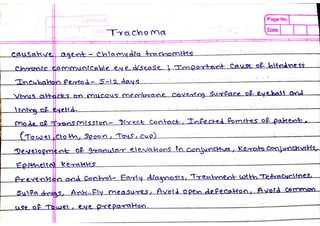 Page No.
Date
Trachoma
Causative agent - Chlamydia trachomitis
Chronic communicable eye disease ; Important cause of blindness
Incubation Period - 5-12 days
Virus attacks on mucous membrane covering surface of eyeball and
lining of eyelid.
Mode of Transmission - Direct contact, Infected fomites of patient,
(Towel, cloth, spoon, Toys, cup)
Development of granular elevations in conjunctiva, Kerato conjunctivitis,
Epithelial Keratitis
Prevention and control - Early diagnosis, Treatment with Tetracyclines,
Sulfa drugs, Anti-Fly measures, Avoid open defecation, Avoid common
use of Towel, eye preparation.